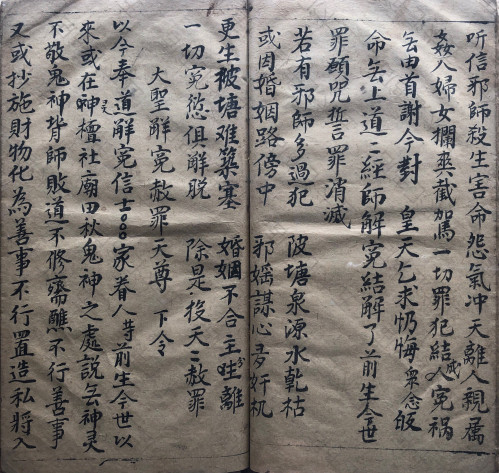 听信邪师殺生害命怨氣冲天離人親属
姦人婦女攔與截駡一切罪犯結成入寃祸
无由首謝今對 皇天乞求忏悔衆念皈
命无上道二經师解寃結解了前生今世
罪願咒誓言罪消滅
若有邪師多過犯 陂塘泉源水乾枯
或因婚姻路傍中 邪婬謀心多奸机
更生被塘难築塞 婚姻不合主吐分離
一切寃愆俱解脱 除是投天二赦罪
大聖解寃赦罪天尊 下令
以今奉道解寃信士 家眷人等前生今世以
來或在神壇社庙田秋鬼神之處説是无神灵
不敬鬼神背師敗道不修齋醮不行善事
又或抄施財物化為善事不行置造私将入